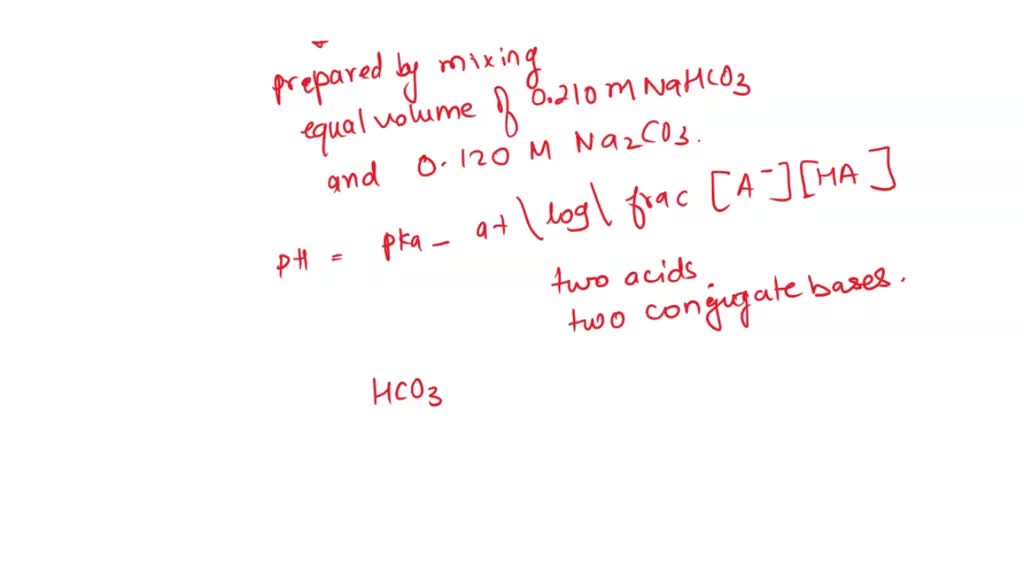 prepared by mixing
equal volume of 0.210 m NaHCO3
and 0.120 M Na2CO3.
pH = pka - a+ \log \ frac [A-][HA]
two acids.
two conjugate bases.
HCO3